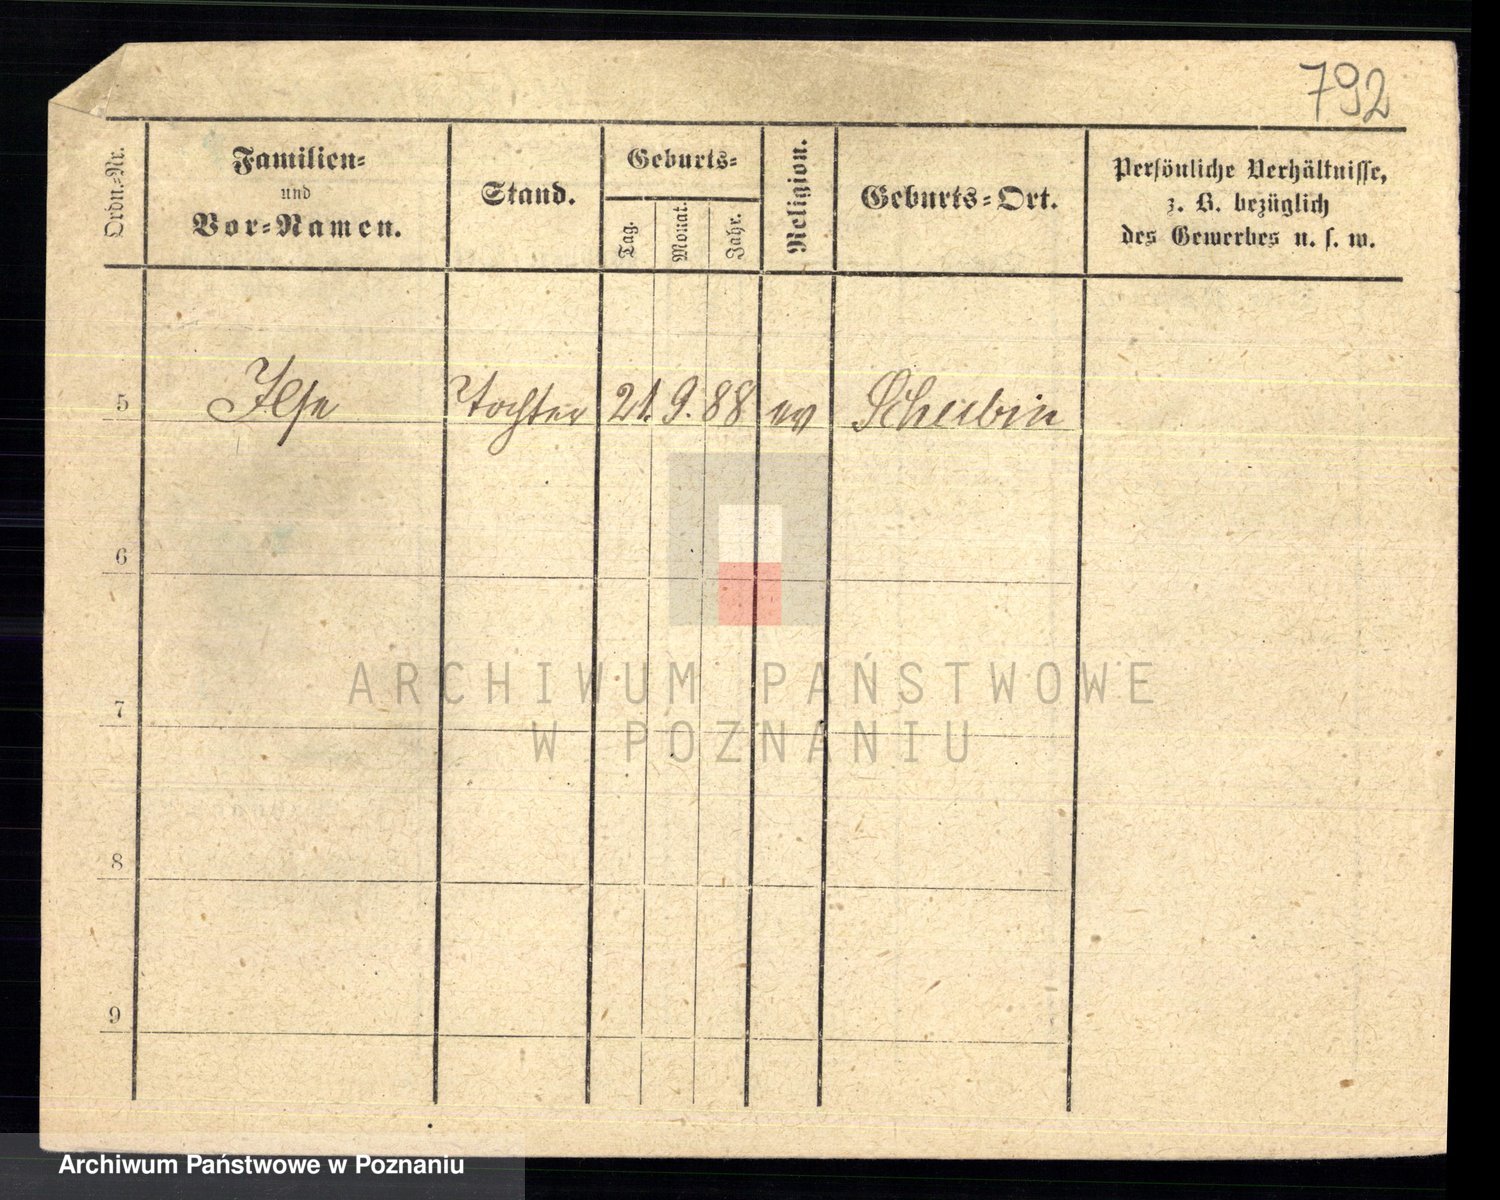 792
Ordn.-Nr.
Familien-
und
Vor-Namen.
Stand.
Geburts-
Tag.
Monat.
Jahr.
Religion.
Geburts-Ort.
Persönliche Verhältnisse,
z. B. bezüglich
des Gewerbes u. s. w.
5 Ilse Tochter 21. 9. 88 ev Schubin
6
7
8
9
ARCHIWUM PAŃSTWOWE
W POZNANIU
Archiwum Państwowe w Poznaniu